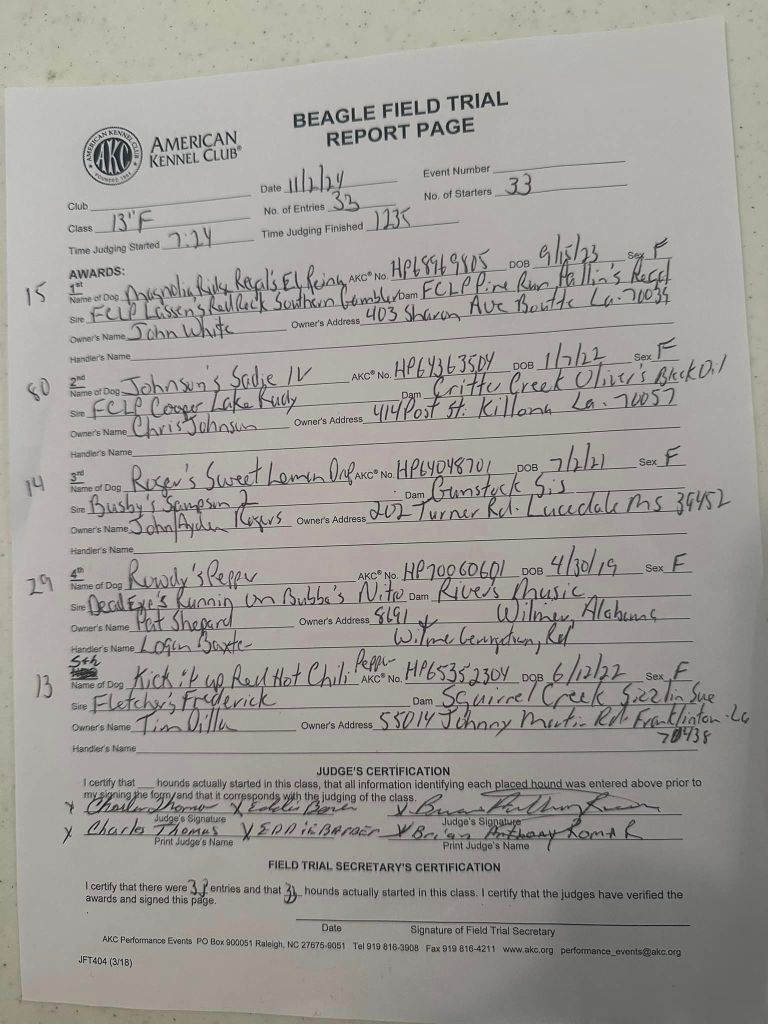 BEAGLE FIELD TRIAL
REPORT PAGE
AMERICAN KENNEL CLUB
AKC
FOUNDED 1884
AMERICAN
KENNEL CLUB®
Date 11/2/24 Event Number
Club
No. of Entries 33 No. of Starters 33
Class 13"F
Time Judging Started 7:24 Time Judging Finished 1235
AWARDS:
15 1st
Name of Dog Magnolia Ridge Regal's El Reina AKC® No. HP68969805 DOB 9/15/23 Sex F
Sire FCLP Lassen's Red Rock Southern Gambler Dam FCLP Pine Run Hallin's Regal
Owner's Name John White Owner's Address 403 Sharon Ave Boutte La. 70039
Handler's Name
80 2nd
Name of Dog Johnson's Sadie IV AKC® No. HP64363504 DOB 1/7/22 Sex F
Sire FCLP Cooper Lake Rudy Dam Critter Creek Oliver's Black Oil
Owner's Name Chris Johnson Owner's Address 414 Post St. Killona La. 70057
Handler's Name
14 3rd
Name of Dog Roger's Sweet Lemon Drop AKC® No. HP64048701 DOB 7/2/21 Sex F
Sire Busby's Sampson 2 Dam Gunstock Sis
Owner's Name John/Ayden Rogers Owner's Address 202 Turner Rd. Lucedale Ms 39452
Handler's Name
29 4th
Name of Dog Rowdy's Pepper AKC® No. HP70060601 DOB 4/30/19 Sex F
Sire DeadEye's Runnin on Bubba's Nitro Dam Rivers Music
Owner's Name Pat Shepard Owner's Address 8691 Wilmer, Alabama
Handler's Name Logan Baxter Wilmer Georgetown Rd
13 5th
Name of Dog Kick it up Red Hot Chili Pepper AKC® No. HP65352304 DOB 6/12/22 Sex F
Sire Fletcher's Frederick Dam Squirrel Creek Sizzlin Sue
Owner's Name Tim Dilla Owner's Address 55014 Johnny Martin Rd. Franklinton La
70438
Handler's Name
JUDGE'S CERTIFICATION
I certify that hounds actually started in this class, that all information identifying each placed hound was entered above prior to
my signing the form, and that it corresponds with the judging of the class.
X Charles Thomas X Eddie Barber X Brian Anthony
Judge's Signature Judge's Signature
X Charles Thomas X EDDIE BARBER X Brian Anthony
Print Judge's Name Print Judge's Name
FIELD TRIAL SECRETARY'S CERTIFICATION
I certify that there were 33 entries and that 33 hounds actually started in this class. I certify that the judges have verified the
awards and signed this page.
Date Signature of Field Trial Secretary
AKC Performance Events PO Box 900051 Raleigh, NC 27675-9051 Tel 919 816-3908 Fax 919 816-4211 www.akc.org performance_events@akc.org
JFT404 (3/18)